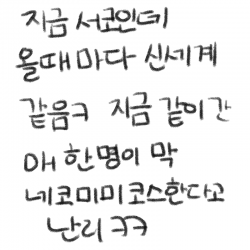 지금 서코인데
올때마다 신세계
같음ㅋ 지금 같이 간
애 한명이 막
네코미미코스한다고
난리 ㅋㅋ